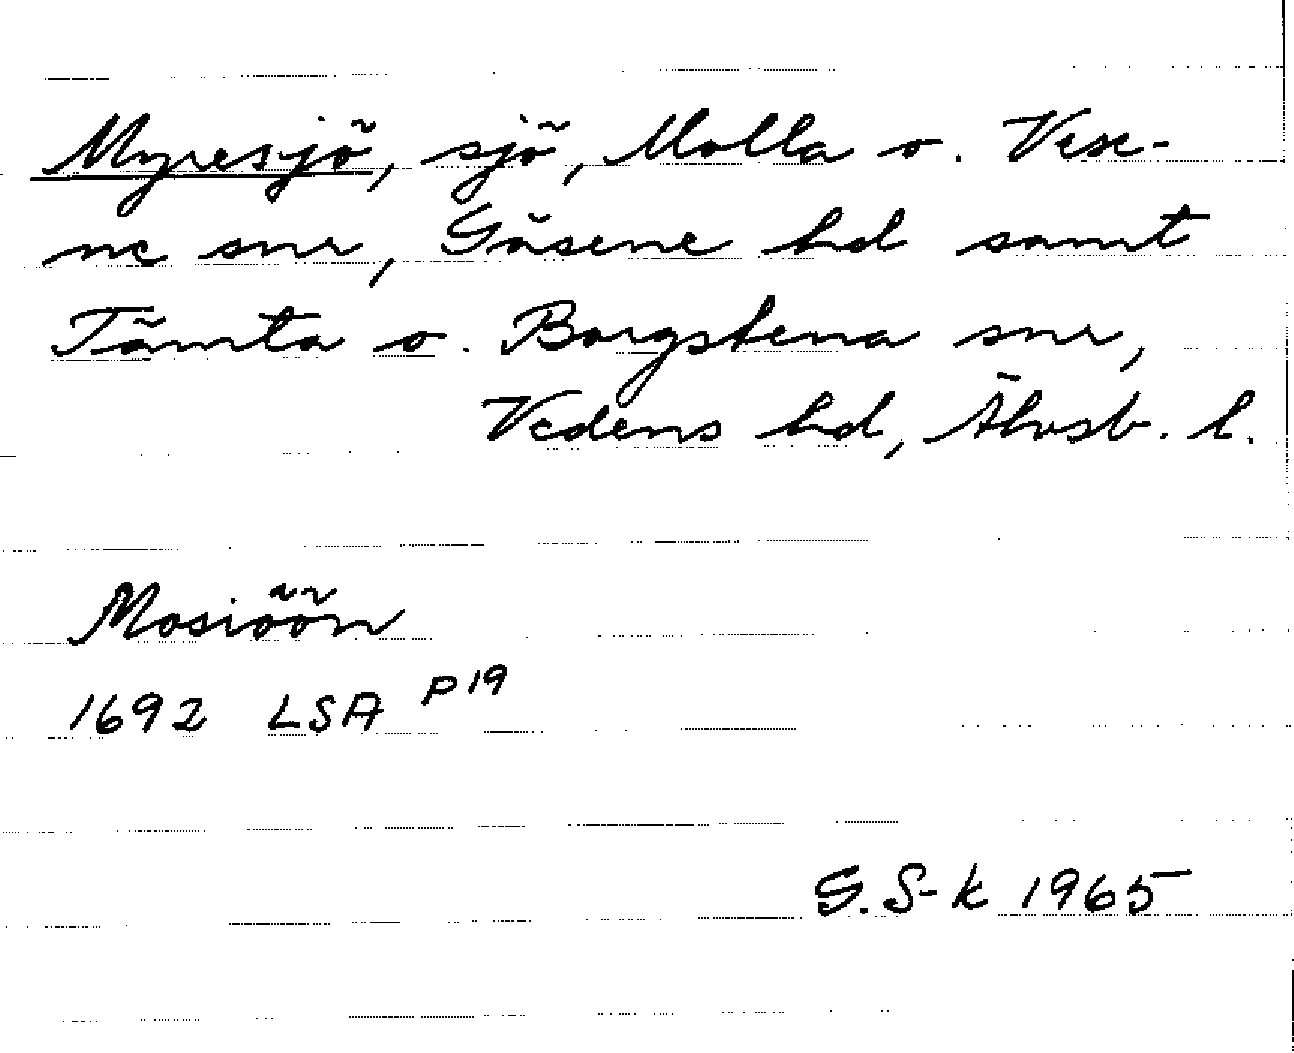 Myresjö, sjö, Molla o. Vese-
ne snr, Gäsene hd samt
Tämta o. Borgstena snr,
Vedens hd, Älvsb. l.
Mosiöön
1692 LSA P19
G. S-k 1965